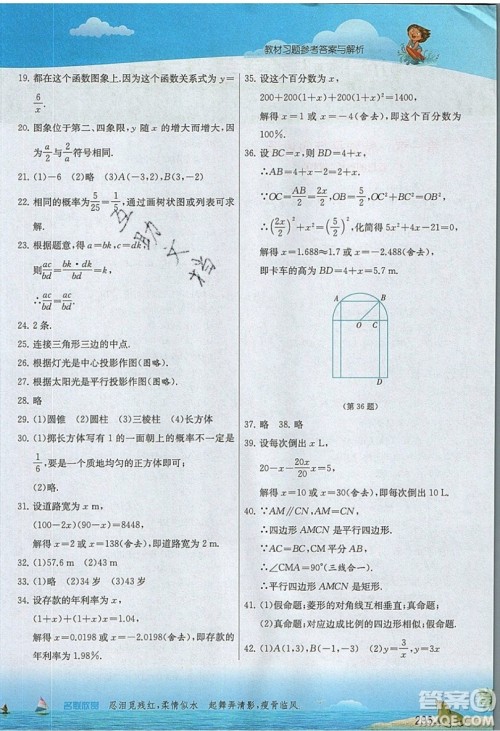 教材习题参考答案与解析
19. 都在这个函数图象上.因为这个函数关系式为 y=
6/x.
20. 图象位于第二、四象限,y 随 x 的增大而增大,因
为 a/2 与 a/2 符号相同.
21. (1)-6 (2)A(-3,2),B(3,-2)
22. 相同的概率为 5/25=1/5,通过画树状图或列表可求
解.
23. 根据题意,得 a=bk,c=dk.
则 ac/bd=bk·dk/bd=k,
∴ac/bd=a/b.
24. 2 条.
25. 连接三角形三边的中点.
26. 根据灯光是中心投影作图(图略).
27. 根据太阳光是平行投影作图(图略).
28. 略
29. (1)圆锥 (2)圆柱 (3)三棱柱 (4)长方体
30. (1)掷长方体写有 1 的一面朝上的概率不一定是
1/6,要是一个质地均匀的正方体方可;
(2)略.
31. 设道路宽为 x m,
(100-2x)(90-x)=8448,
解得 x=2 或 x=138(舍去),即道路宽为 2 m.
32. (1)57.6 m (2)43 m
33. (1)略 (2)43 岁 (3)略 (4)34 岁
34. 设存款的年利率为 x,
(1+x)+(1+x)x=1.04.
解得 x=0.0198 或 x=-2.0198(舍去),即存款的
年利率为 1.98%.
35. 设这个百分数为 x,
200+200(1+x)+200(1+x)²=1400,
解得 x=1 或 x=-4(舍去),即这个百分数为
100%.
36. 设 BC=x,则 BD=4+x,
∴AB=4+x-2=2+x.
∵OC=AB/2=2+x/2,OB=2x/2,
∴(2x/2)²=(2+x/2)²+x²,化简得 5x²+4x-21=0.
解得 x=1.688≈1.7 或 x=-2.488(舍去),
即卡车的高 BD=4+x=5.7 m.
A
B
O
C
D
(第 36 题)
37. 略 38. 略
39. 设每次倒出 x L,
20-x-20-x/20·x=5,
解得 x=10 或 x=30(舍去),即每次倒出 10 L.
40. ∵AM∥CN,AN∥CM,
∴四边形 AMCN 是平行四边形.
∵AC=AB,CM 平分 BC,
∴∠CMA=90°(三线合一).
∴平行四边形 AMCN 是矩形.
41. (1)假命题;菱形的对角线互相垂直;真命题;
(2)真命题;对角线相等的四边形是矩形;假命题.
42. (1)y=3/x,y=x (2)(-√3,-√3)
互助文档
名校欣赏 忍泪觅残红,柔情似水 起舞弄清影,瘦骨临风